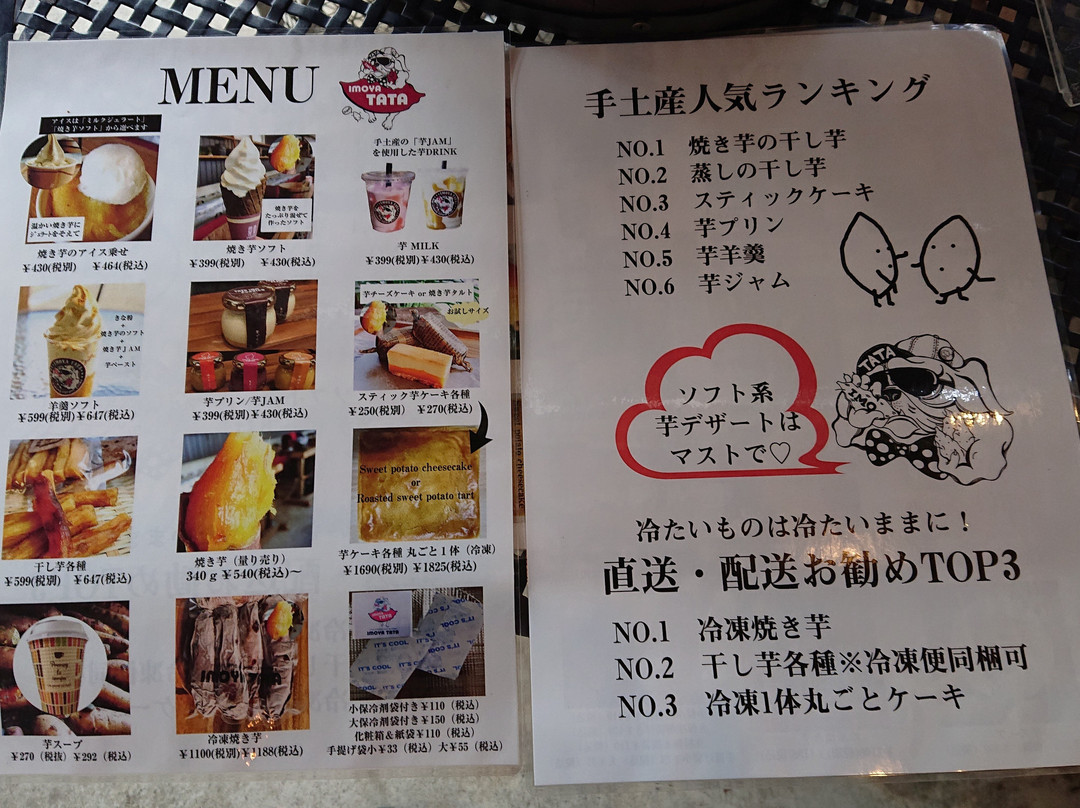 MENU
IMOYA
TATA
アイスは「ミルクジェラート」
「焼き芋ソフト」から選べます
温かい焼き芋に
ジェラートをそえて
焼き芋のアイス乗せ
￥430(税別) ￥464(税込)
焼き芋を
たっぷり混ぜて
作ったソフト
焼き芋ソフト
￥399(税別) ￥430(税込)
手土産の「芋JAM」
を使用した芋DRINK
芋 MILK
￥399(税別)￥430(税込)
きな粉
+
焼き芋のソフト
+
焼き芋JAM
+
芋ペースト
羊羹ソフト
￥599(税別)￥647(税込)
芋プリン/芋JAM
￥399(税別)￥430(税込)
芋チーズケーキ or 焼き芋タルト
お試しサイズ
スティック芋ケーキ各種
￥250(税別) ￥270(税込)
干し芋各種
￥599(税別) ￥647(税込)
焼き芋（量り売り）
340ｇ￥540(税込)～
Sweet potato cheesecake
or
Roasted sweet potato tart
芋ケーキ各種 丸ごと１体（冷凍）
￥1690(税別) ￥1825(税込)
芋スープ
￥270（税抜）￥292（税込）
IMOYA TATA
冷凍焼き芋
￥1100(税別)￥1188(税込)
IMOYA TATA
IT'S COOL
小保冷剤袋付き￥110（税込）
大保冷剤袋付き￥150（税込）
化粧箱＆紙袋￥110（税込）
手提げ袋小￥33（税込）大￥55（税込）
手土産人気ランキング
NO.1 焼き芋の干し芋
NO.2 蒸しの干し芋
NO.3 スティックケーキ
NO.4 芋プリン
NO.5 芋羊羹
NO.6 芋ジャム
ソフト系
芋デザートは
マストで♡
TATA
IMO
冷たいものは冷たいままに！
直送・配送お勧めTOP3
NO.1 冷凍焼き芋
NO.2 干し芋各種※冷凍便同梱可
NO.3 冷凍1体丸ごとケーキ